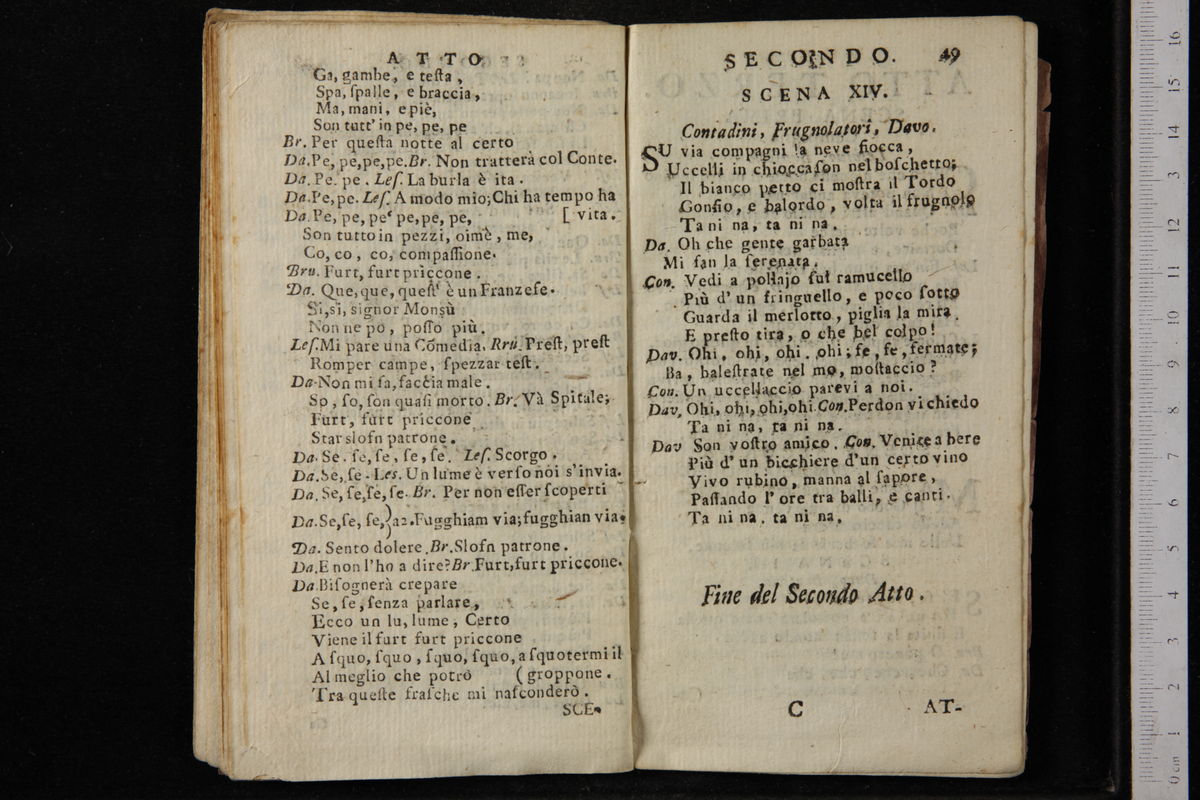 ATTO
Ga, gambe, e teſta,
Spa, ſpalle, e braccia,
Ma, mani, e piè,
Son tutt' in pe, pe, pe
Br. Per queſta notte al certo
Da. Pe, pe, pe, pe. Br. Non tratterà col Conte.
Da. Pe. pe. Leſ. La burla è ita.
Da. Pe, pe. Leſ. A modo mio; Chi ha tempo ha
Da. Pe, pe, pe' pe, pe, pe, [ vita.
Son tutto in pezzi, oimè, me,
Co, co, co, compaſſione.
Bru. Furt, furt priccone.
Da. Que, que, queſt' è un Franzeſe.
Si, si, signor Monsù
Non ne pò, poſſo più.
Leſ. Mi pare una Cõmedia. Rru. Preſt, preſt
Romper campe, ſpezzar teſt.
Da. Non mi fa, faccia male.
So, ſo, ſon quaſi morto. Br. Và Spitale;
Furt, furt priccone
Star slofn patrone.
Da. Se. ſe, ſe, ſe, ſe. Leſ. Scorgo.
Da. Se, ſe. Les. Un lume è verſo noi s'invia.
Da. Se, ſe, ſe, ſe. Br. Per non eſſer ſcoperti
Da. Se, ſe, ſe,} a2. Fugghiam via; fugghian via.
Da. Sento dolere. Br. Slofn patrone.
Da. E non l'ho a dire? Br. Furt, furt priccone.
Da. Biſognerà crepare
Se, ſe, ſenza parlare,
Ecco un lu, lume, Certo
Viene il furt furt priccone
A ſquo, ſquo, ſquo, ſquo, a ſquotermi il
Al meglio che potrò ( groppone.
Tra queſte fraſche mi naſconderò.
SCE-
SECONDO. 49
SCENA XIV.
Contadini, Frugnolatori, Davo.
SU via compagni la neve fiocca,
Uccelli in chiocca ſon nel boſchetto;
Il bianco petto ci moſtra il Tordo
Gonfio, e balordo, volta il frugnolo
Ta ni na, ta ni na.
Da. Oh che gente garbata
Mi fan la ſerenata.
Con. Vedi a pollajo ſul ramucello
Più d' un fringuello, e poco ſotto
Guarda il merlotto, piglia la mira.
E preſto tira, o che bel colpo!
Dav. Ohi, ohi, ohi. ohi; fe, fe, fermate;
Ba, baleſtrate nel mo, moſtaccio?
Con. Un uccellaccio parevi a noi.
Dav. Ohi, ohi, ohi, ohi. Con. Perdon vi chiedo
Ta ni na, ta ni na.
Dav Son voſtro amico. Con. Venite a bere
Più d' un bicchiere d'un certo vino
Vivo rubino, manna al ſapore,
Paſſando l' ore tra balli, e canti.
Ta ni na. ta ni na,
Fine del Secondo Atto.
C AT-
0 cm 1 2 3 4 5 6 7 8 9 10 11 12 13 14 15 16